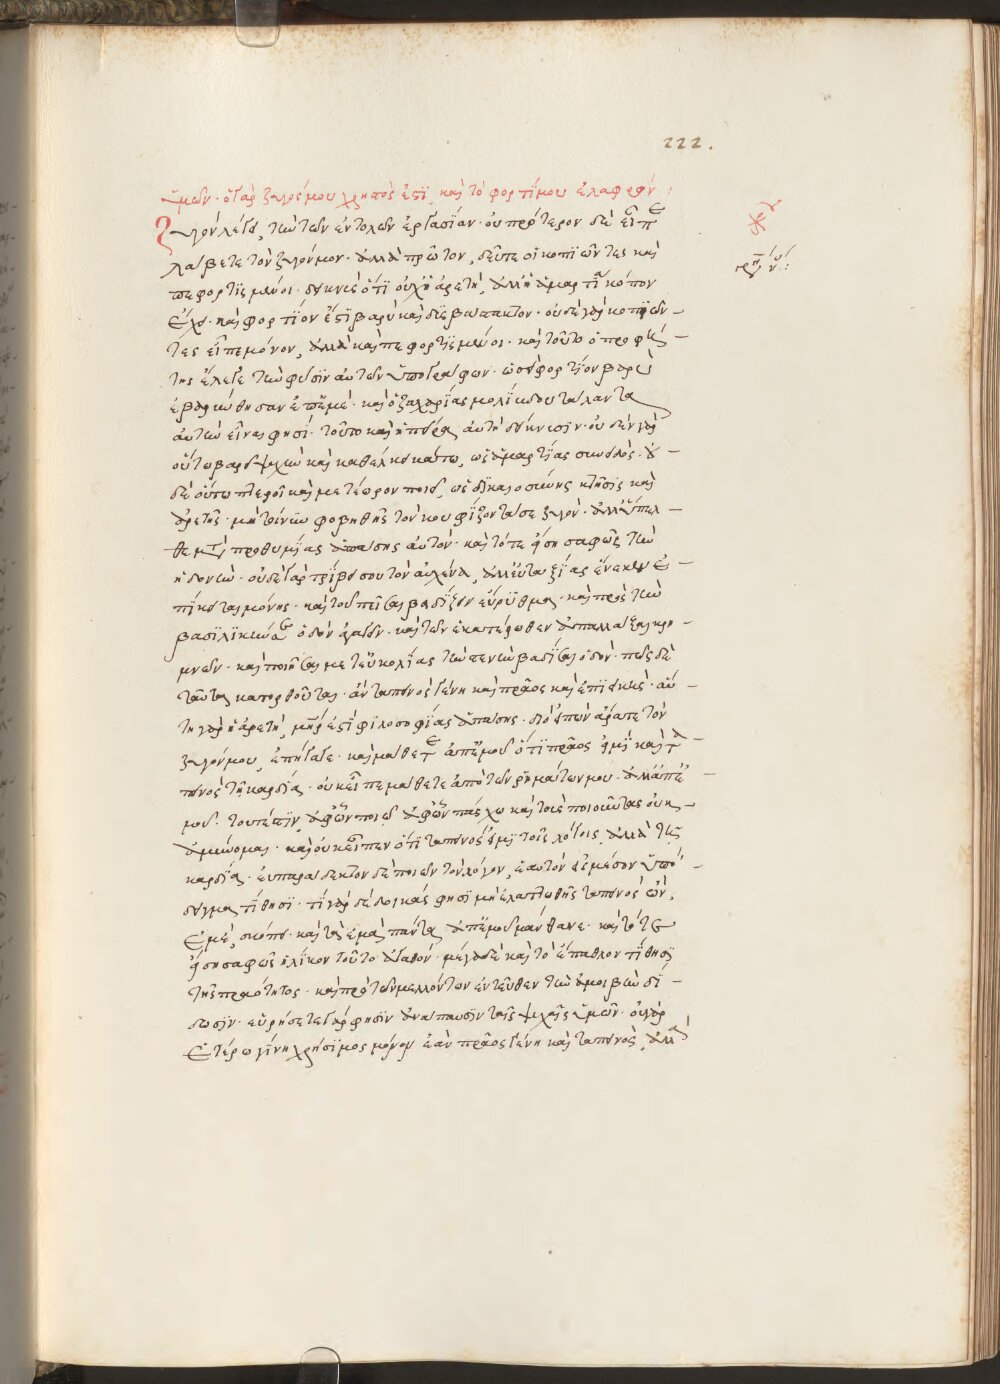 222.
ὑμῶν· ὁ γὰρ ζυγός μου χρηστός ἐστι, καὶ τὸ φορτίον μου ἐλαφρόν:
ζυγὸν λέγει, τὴν τῶν ἐντολῶν ἐργασίαν· οὐ πρότερον δὲ εἶπε
λάβετε τὸν ζυγόν μου· ἀλλὰ πρῶτον, δεῦτε οἱ κοπιῶντες καὶ
πεφορτισμένοι· δεικνὺς ὅτι οὐχ ἡ ἀρετὴ, ἀλλ' ἡ ἁμαρτία κόπον
ἔχει· καὶ φορτίον ἐστὶ βαρὺ καὶ δυσβάστακτον· οὐδὲ γὰρ κοπιῶν
τες εἶπε μόνον, ἀλλὰ καὶ πεφορτισμένοι· καὶ τοῦτο ὁ προφή
της ἔλεγε τὴν φύσιν αὐτῶν ὑπογράφων· ὡσεὶ φορτίον βαρὺ
ἐβαρύνθησαν ἐπ' ἐμέ· καὶ ὁ ζαχαρίας μολίβδου τάλαντα
αὐτὴν εἶναι φησί· τοῦτο καὶ ἡ πεῖρα αὐτὴ δείκνυσιν· οὐδὲν γὰρ
οὕτω βαρεῖ ψυχὴν καὶ καθέλκει κάτω, ὡς ἁμαρτίας συνειδός·
δὲ οὕτω πτεροῖ καὶ μετέωρον ποιεῖ, ὡς δικαιοσύνης κτῆσις καὶ
ἀρετῆς· μὴ τοίνυν φοβηθῇς τὸν κουφίζοντά σε ζυγόν· ἀλλ' ὕπελ
θε μετὰ προθυμίας ἁπάσης αὐτὸν· καὶ τότε εἴσῃ σαφῶς τὴν
ἡδονὴν· οὐδὲ γὰρ τρίβει σου τὸν αὐχένα, ἀλλ' εὐταξίας ἕνεκεν ἐ
πίκειται μόνης· καὶ τοῦ πεῖσαι βαδίζειν εὔρυθμα· καὶ πρὸς τὴν
βασιλικὴν ὁδὸν ἀγαγεῖν· καὶ τῶν ἑκατέρωθεν ἀπαλλάξαι κρη
μνῶν· καὶ ποιῆσαι μετ' εὐκολίας τὴν στενὴν βαδίσαι ὁδόν· πῶς δὲ
ταῦτα κατορθοῦται· ἂν ταπεινὸς γένῃ καὶ πρᾶος καὶ ἐπιεικὴς· αὕ
τη γὰρ ἡ ἀρετὴ, μήτηρ ἐστὶ φιλοσοφίας ἁπάσης· διὸ εἰπὼν ἄρατε τὸν
ζυγόν μου, ἐπήγαγε· καὶ μάθετε ἀπ' ἐμοῦ ὅτι πρᾶος εἰμὶ καὶ τα
πεινὸς τῇ καρδίᾳ· οὐκ εἶπε μάθετε ἀπὸ τῶν ῥημάτων μου· ἀλλ' ἀπ' ἐ
μοῦ· τουτέστιν, ἀφ' ὧν ποιῶ ἀφ' ὧν πάσχω καὶ τοὺς ποιοῦντας οὐκ
ἀμύνομαι· καὶ οὐκ εἶπεν ὅτι ταπεινός εἰμι τοῖς λόγοις, ἀλλὰ τῇ
καρδίᾳ· εὐπαράδεκτον δὲ ποιῶν τὸν λόγον, ἑαυτὸν εἰς μέσον ὑπό
δειγμα τίθησι· τί γὰρ δέδοικάς φησι μὴ ἐλαττωθῇς ταπεινὸς ὤν,
ἐμὲ, σκόπει· καὶ τὰ ἐμὰ πάντα ἀπ' ἐμοῦ μάνθανε· καὶ τότε
εἴσῃ σαφῶς ἡλίκον τοῦτο ἀγαθόν· μέγα δὲ καὶ τὸ ἔπαθλον τίθησι
τῆς πραότητος· καὶ πρὸ τῶν μελλόντων ἐντεῦθεν τὴν ἀμοιβὴν δί
δωσιν· εὑρήσετε γάρ φησιν ἀνάπαυσιν ταῖς ψυχαῖς ὑμῶν· οὐ γὰρ
ἑτέρῳ γίνῃ χρήσιμος μόνον ἐὰν πρᾶος γένῃ καὶ ταπεινὸς, ἀλλὰ